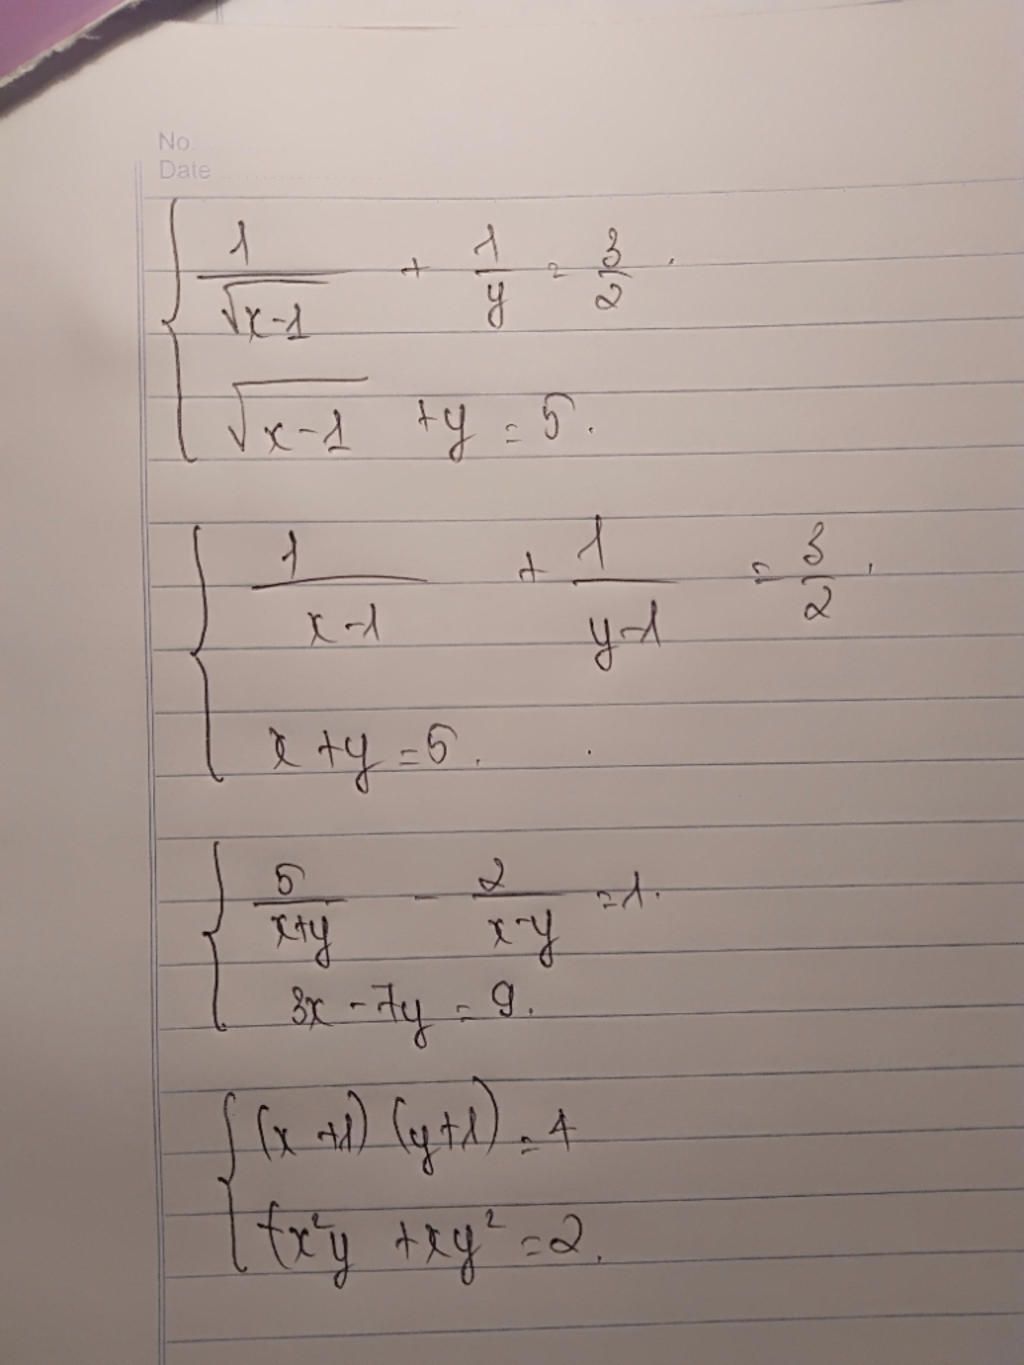 No.
Date
1/√(x-1) + 1/y = 3/2.
√(x-1) + y = 5.
1/(x-1) + 1/(y-1) = 3/2.
x + y = 5.
5/(x+y) - 2/(x-y) = 1.
3x - 7y = 9.
(x+1)(y+1) = 4
x²y + xy² = 2.